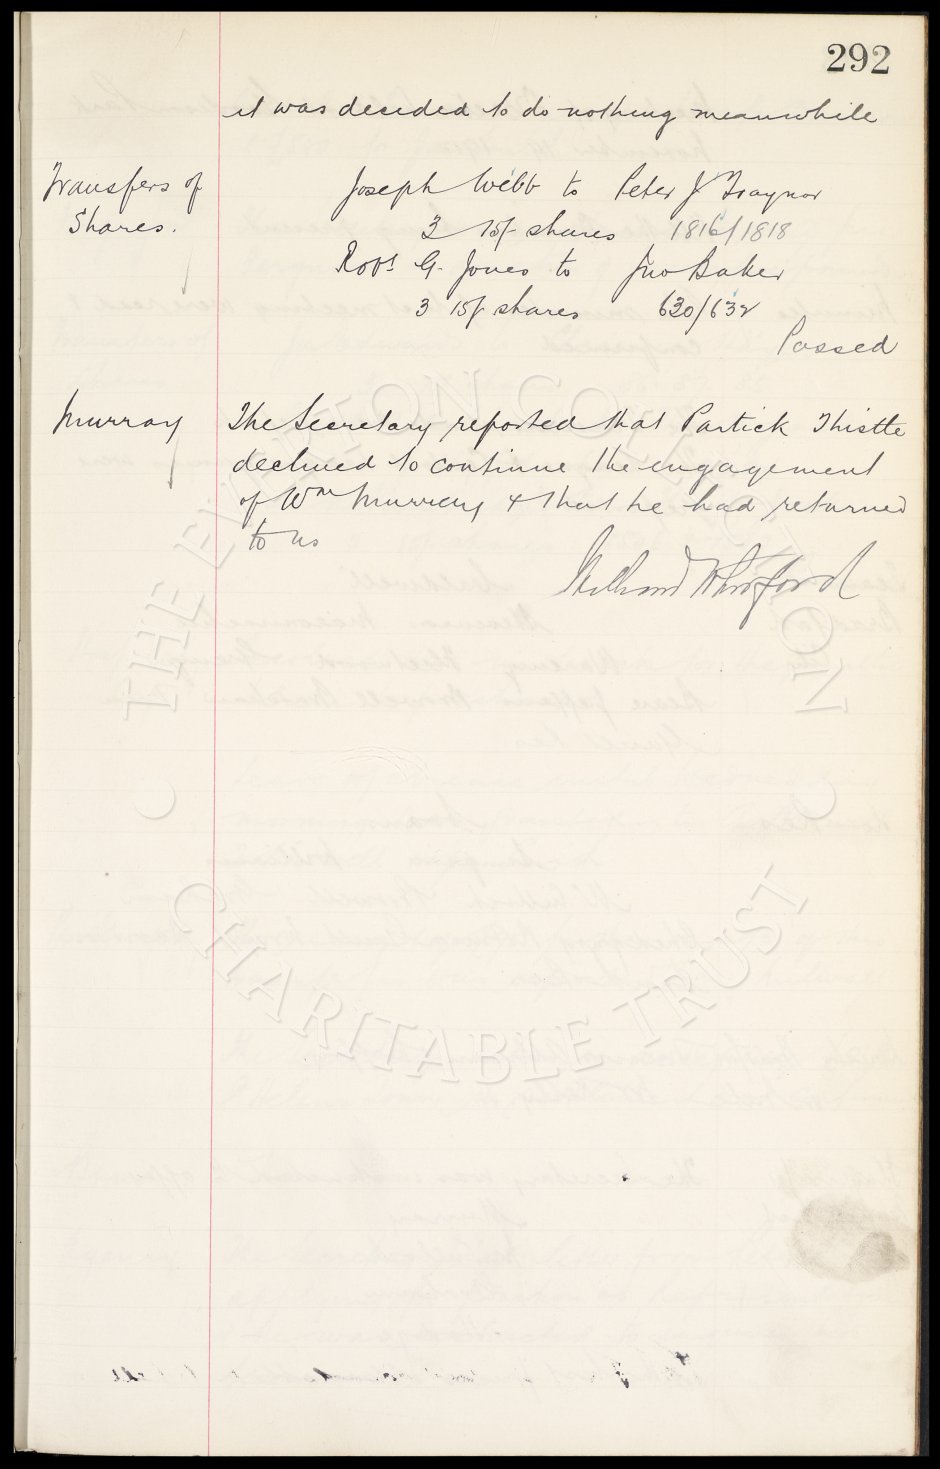 292
it was decided to do nothing meanwhile
Transfers of Shares.
Joseph Webb to Peter J Traynor
3 15/- shares 1816/1818
Robt G. Jones to Jno Baker
3 15/- shares 630/632
Passed
Murray
The Secretary reported that Partick Thistle
declined to continue the engagement
of Wm Murray & that he had returned
to us
THE EVERTON COLLECTION
CHARITABLE TRUST